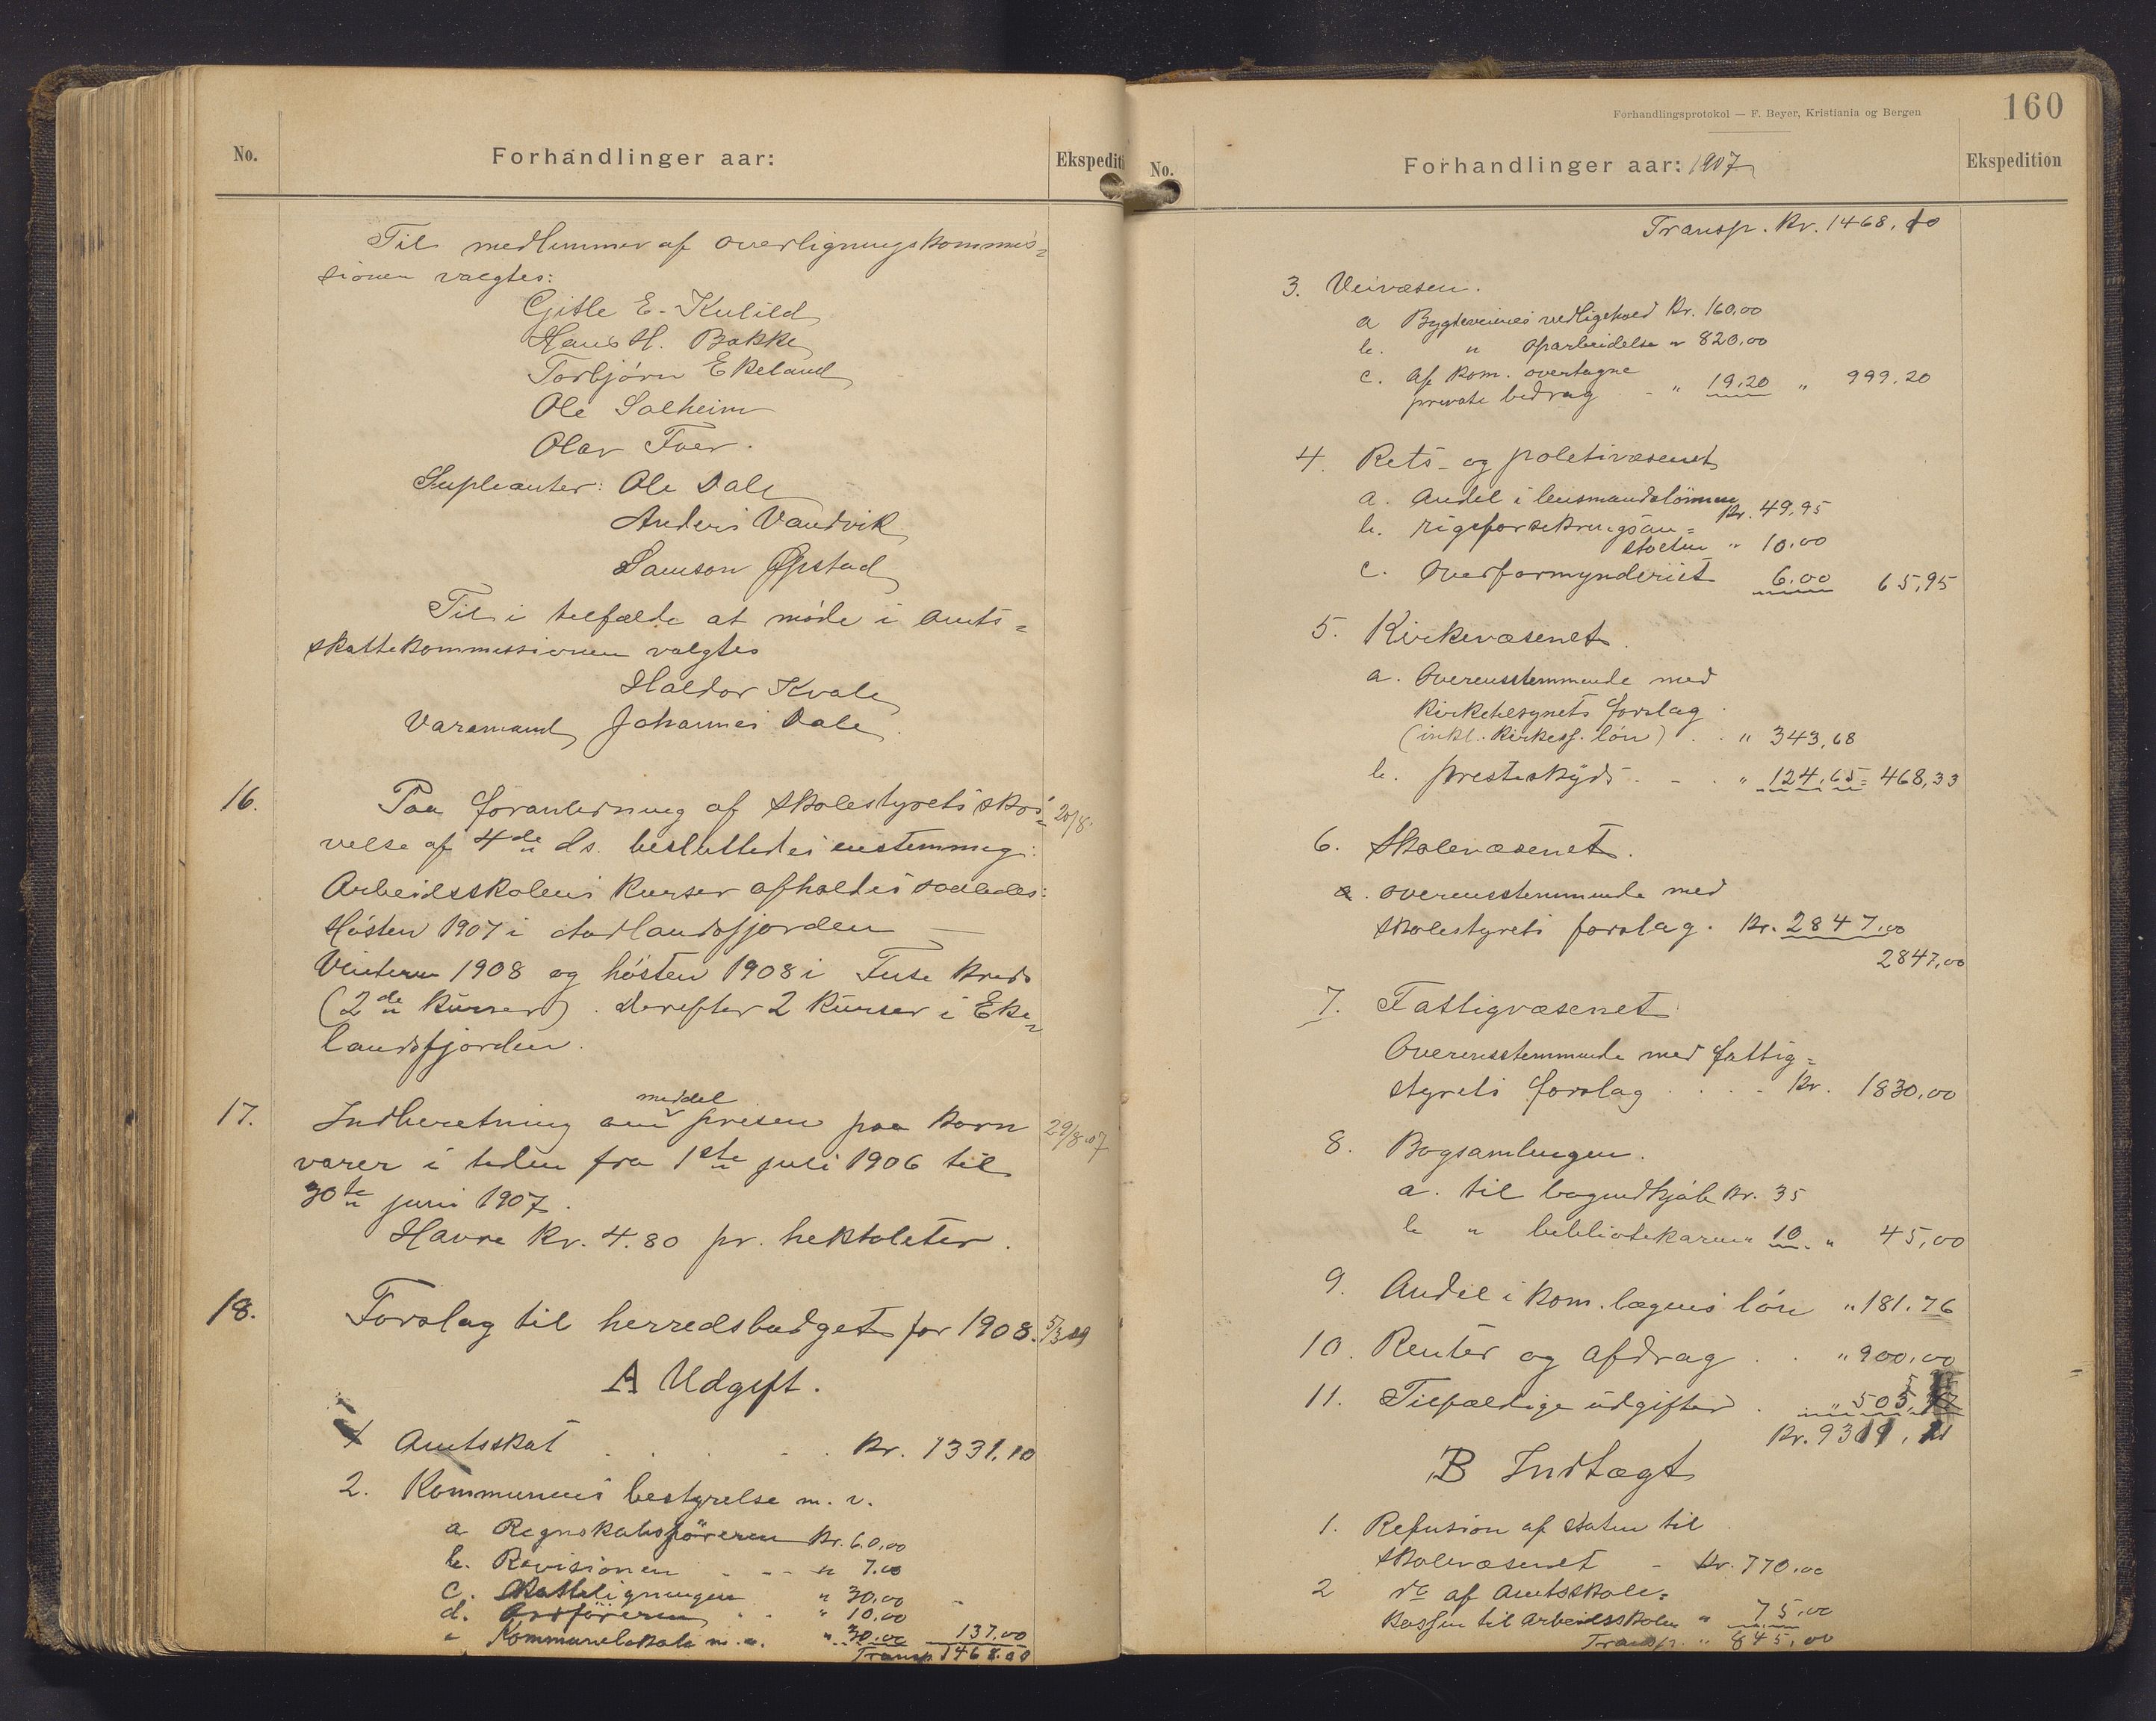 No.
Forhandlinger aar:
Ekspediti
Til medlemmer af overligningskommis=
sionen valgtes:
Gitle E. Kulild
Hans H. Bakke
Torbjørn Ekeland
Ole Solheim
Olav Foer.
Supleanter: Ole Dale
Anders Vandvik
Samson Øpstad
Til i tilfælde at møde i amts=
skattekommissionen valgtes
Haldor Kvale
Varamand Johannes Dale.
16.
Paa foranledning af skolestyrets skri=
20/8.
velse af 4de ds. besluttedes enstemmig:
Arbeidsskolens kurser afholdes saaledes:
Høsten 1907 i Hadlandsfjorden —
Vinteren 1908 og høsten 1908 i Fuse kreds
(2de kurser). Derefter 2 kurser i Eke=
landsfjorden.
17.
Indberetning om middel prisen paa korn
29/8.07
varer i tiden fra 1ste juli 1906 til
30te juni 1907.
Havre kr. 4.80 pr. hektoliter.
18.
Forslag til herredsbudget for 1908.
A Udgift.
1 Amtsskat . . . . kr. 1331,10
2. Kommunens bestyrelse m. v.
a Regnskabsføreren kr. 60,00
b. Revisionen . . . " 7.00
c. Skatteligningen " 30,00
d. Ordføreren . . " 10.00
" Kommunelokale m. v. " 30.00 137.00
Transp. 1468.00
Forhandlingsprotokol — F. Beyer, Kristiania og Bergen
160
No.
Forhandlinger aar: 1907
Ekspedition
Transp. Kr. 1468,10
3. Veivæsen.
a Bygdeveienes vedligehold kr. 160,00
b. " oparbeidelse " 820,00
c. Af kom. overtagne
private bidrag - " 19,20 " 999,20
4. Rets- og politivæsenet
a. Andel i lensmandslønnen
kr. 49,95
b. rigsforsikringsan=
stalten " 10,00
c. Overformynderiet 6.00 65,95
5. Kirkevæsenet.
a. Overensstemmende med
kirketilsynets forslag
(inkl. kirkess. løn) . . " 343,68
b. presteskyds . - . " 124,65 = 468,33
6. Skolevæsenet.
a. overensstemmende med
skolestyrets forslag. kr. 2847,00
2847,00
7. Fattigvæsenet
Overensstemmende med fattig=
styrets forslag . . . . kr. 1830,00
8. Bogsamlingen.
a. til bogindkjøb kr. 35
b " bibliotekaren " 10. " 45,00
9. Andel i kom. lægens løn " 181.76
10. Renter og afdrag . . " 900,00
11. Tilfældige udgifter . " 505,
Kr. 9311,
B Indtægt
1. Refusion af staten til
skolevæsenet - kr. 770.00
2 do af Amtsskole=
kassen til arbeidsskolen " 75,00
Transp. " 845,00